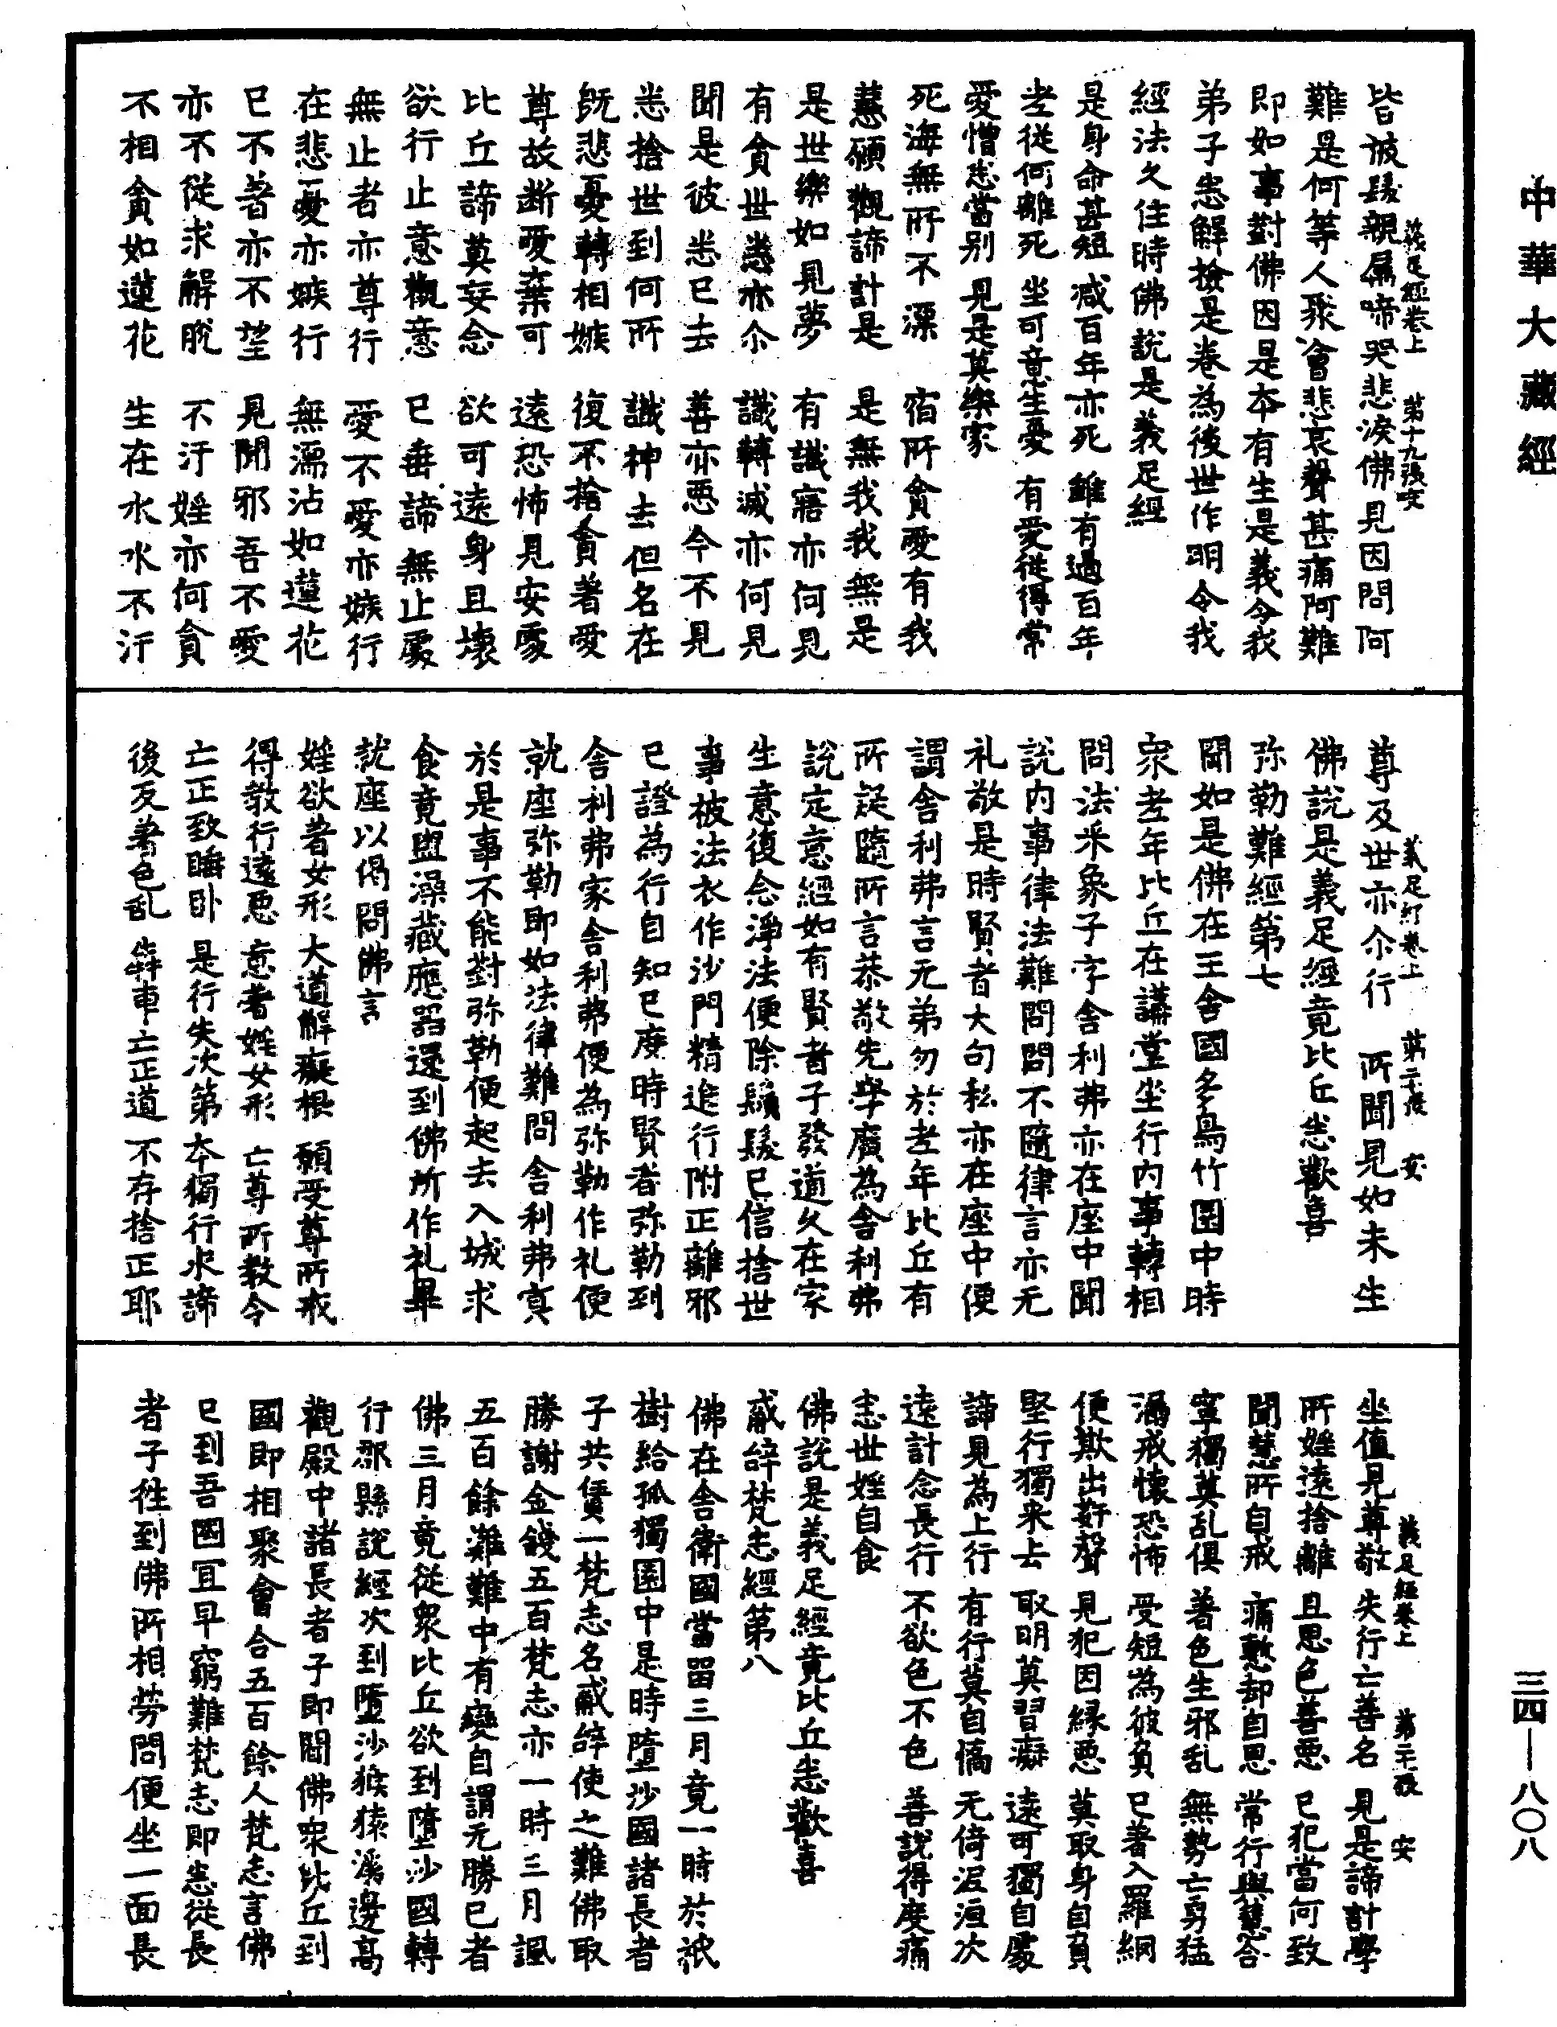 中華大藏經
三四—八〇八
義足經卷上　第十九張　安
皆被髮親属啼哭悲淚佛見因問阿
難是何等人聚會悲哀聲甚痛阿難
即如事對佛因是本有生是義令我
弟子悉解撿是卷為後世作明令我
經法久住時佛說是義足經
是身命甚短　減百年亦死　雖有過百年
老從何離死　坐可意生憂　有愛從得常
愛憎悉當别　見是莫樂家
死海無所不漂　宿所貪愛有我
慧願觀諦計是　是無我我無是
是世樂如見夢　有識寤亦何見
有貪世悉亦尒　識轉滅亦何見
聞是彼悉已去　善亦惡今不見
悉捨世到何所　識神去但名在
既悲憂轉相嫉　復不捨貪著愛
尊故斷愛棄可　遠恐怖見安處
比丘諦莫妄念　欲可遠身且壞
欲行止意觀意　已垂諦無止處
無止者亦尊行　愛不愛亦嫉行
在悲憂亦嫉行　無濡沾如蓮花
已不著亦不望　見聞邪吾不愛
亦不從求解脫　不汙婬亦何貪
不相貪如蓮花　生在水水不汙
義足經卷上　第二十張　安
尊及世亦尒行　所聞見如未生
佛說是義足經竟比丘悉歡喜
弥勒難經第七
聞如是佛在王舍國多鳥竹園中時
衆老年比丘在講堂坐行內事轉相
問法采象子字舍利弗亦在座中聞
說內事律法難問問不隨律言亦无
礼敬是時賢者大句私亦在座中便
謂舍利弗言无弟勿於老年比丘有
所疑隨所言恭敬先學廣為舍利弗
說定意經如有賢者子發道久在家
生意復念淨法便除鬚髮已信捨世
事被法衣作沙門精進行附正離邪
已證為行自知已度時賢者弥勒到
舍利弗家舍利弗便為弥勒作礼便
就座弥勒即如法律難問舍利弗㝠
於是事不能對弥勒便起去入城求
食竟盥澡藏應器還到佛所作礼畢
就座以偈問佛言
婬欲著女形　大道解癡根　願受尊所戒
得教行遠惡　意著婬女形　亡尊所教令
亡正致睡卧　是行失次第　本獨行求諦
後反著色乱　犇車亡正道　不存捨正耶
義足經卷上　第二十一張　安
坐值見尊敬　失行亡善名　見是諦計學
所婬遠捨離　且思色善惡　已犯當何致
聞慧所自戒　痛慙却自思　常行與慧合
寧獨莫乱俱　著色生邪乱　無勢亡勇猛
漏戒懷恐怖　受短為彼負　已著入羅網
便欺出姧聲　見犯因緣惡　莫取身自負
堅行獨来去　取明莫習癡　遠可獨自處
諦見為上行　有行莫自憍　无倚泥洹次
遠計念長行　不欲色不色　善說得度痛
悉世婬自食
佛說是義足經竟比丘悉歡喜
勇辭梵志經第八
佛在舍衛國當留三月竟一時於祇
樹給孤獨園中是時墮沙國諸長者
子共賃一梵志名勇辭使之難佛取
勝謝金錢五百梵志亦一時三月諷
五百餘難難中有變自謂无勝已者
佛三月竟從衆比丘欲到墮沙國轉
行郡縣說經次到墮沙猴猨溪邊高
觀殿中諸長者子即聞佛衆比丘到
國即相聚會合五百餘人梵志言佛
已到吾國冝早窮難梵志即悉從長
者子往到佛所相勞問便坐一面長